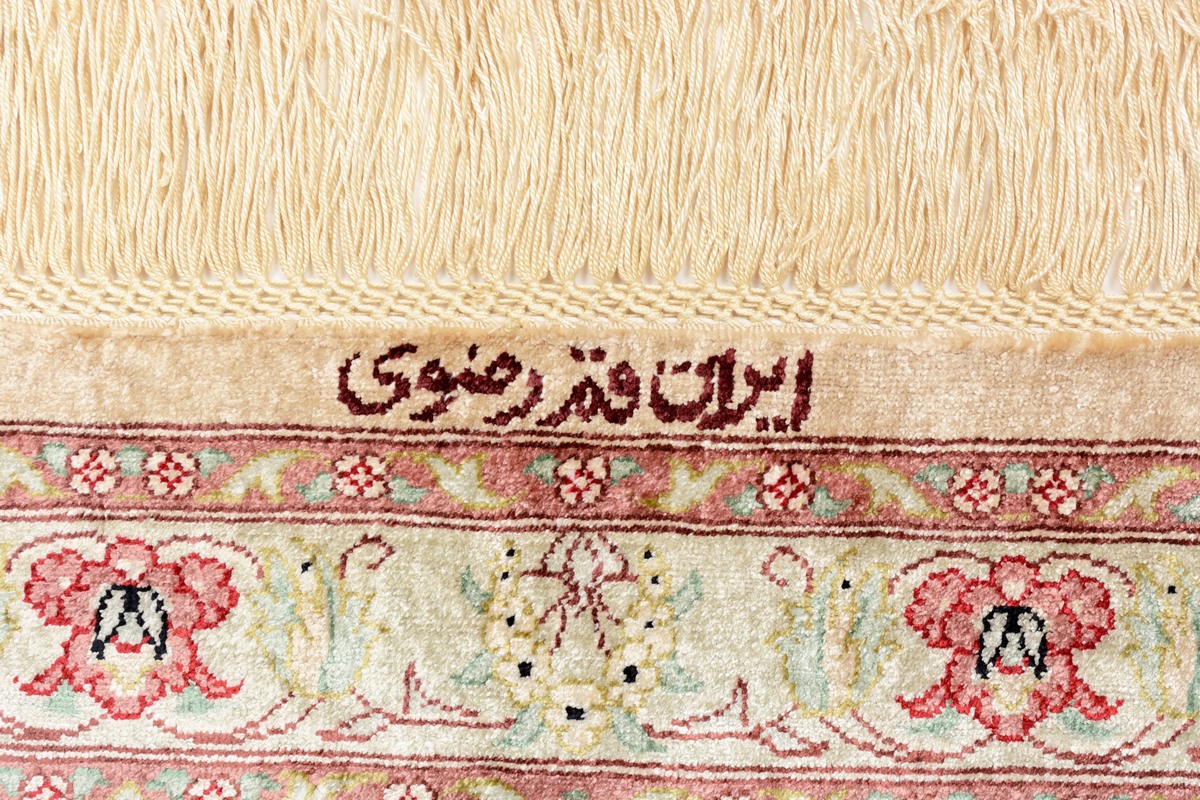 ایران قم رضوی